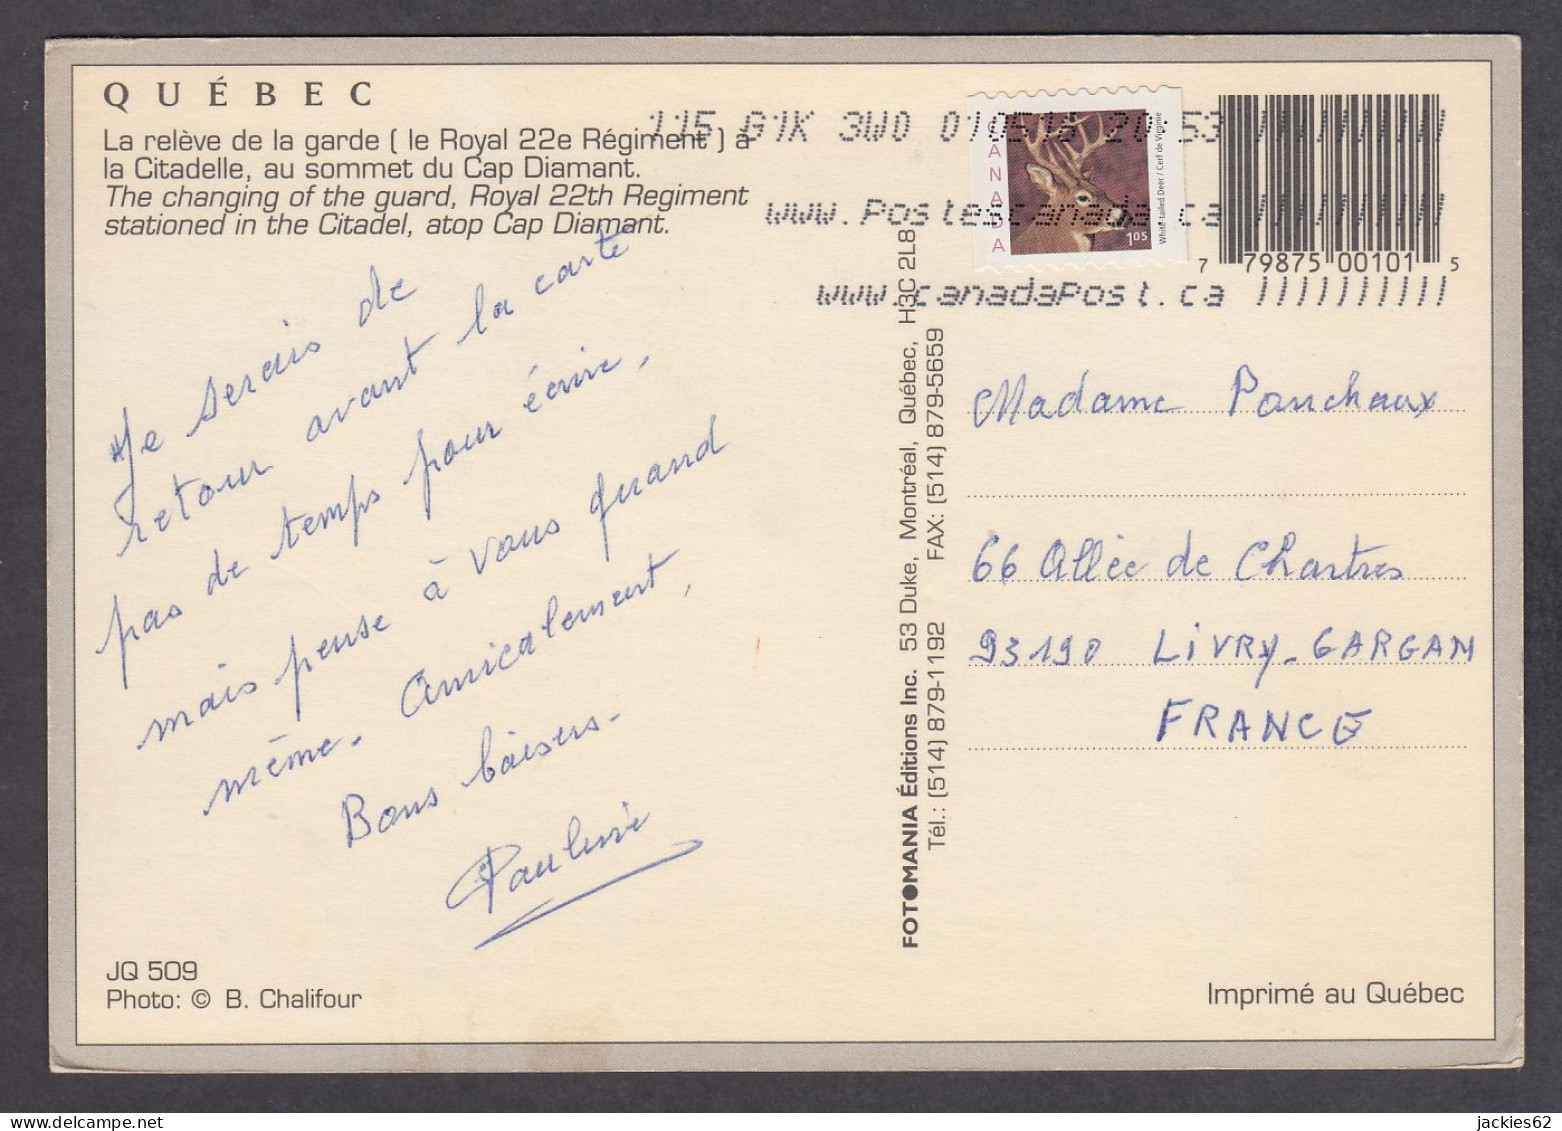 QUÉBEC
La relève de la garde ( le Royal 22e Régiment ) à
la Citadelle, au sommet du Cap Diamant.
The changing of the guard, Royal 22th Regiment
stationed in the Citadel, atop Cap Diamant.
Je serais de
retour avant la carte
pas de temps pour écrire,
mais pense à vous quand
même. Amicalement,
Bons baisers.
Pauline
JQ 509
Photo: © B. Chalifour
FOTOMANIA Éditions Inc. 53 Duke, Montréal, Québec, H3C 2L8
Tél.: (514) 879-1192 FAX: (514) 879-5659
115 G1K 3W0
www.Postescanada.ca
www.canadaPost.ca
CANADA
White-tailed Deer / Cerf de Virginie
1.05
7 79875 00101 5
Madame Panchaux
66 Allée de Chartres
93190 LIVRY-GARGAN
FRANCE
Imprimé au Québec
jackies62